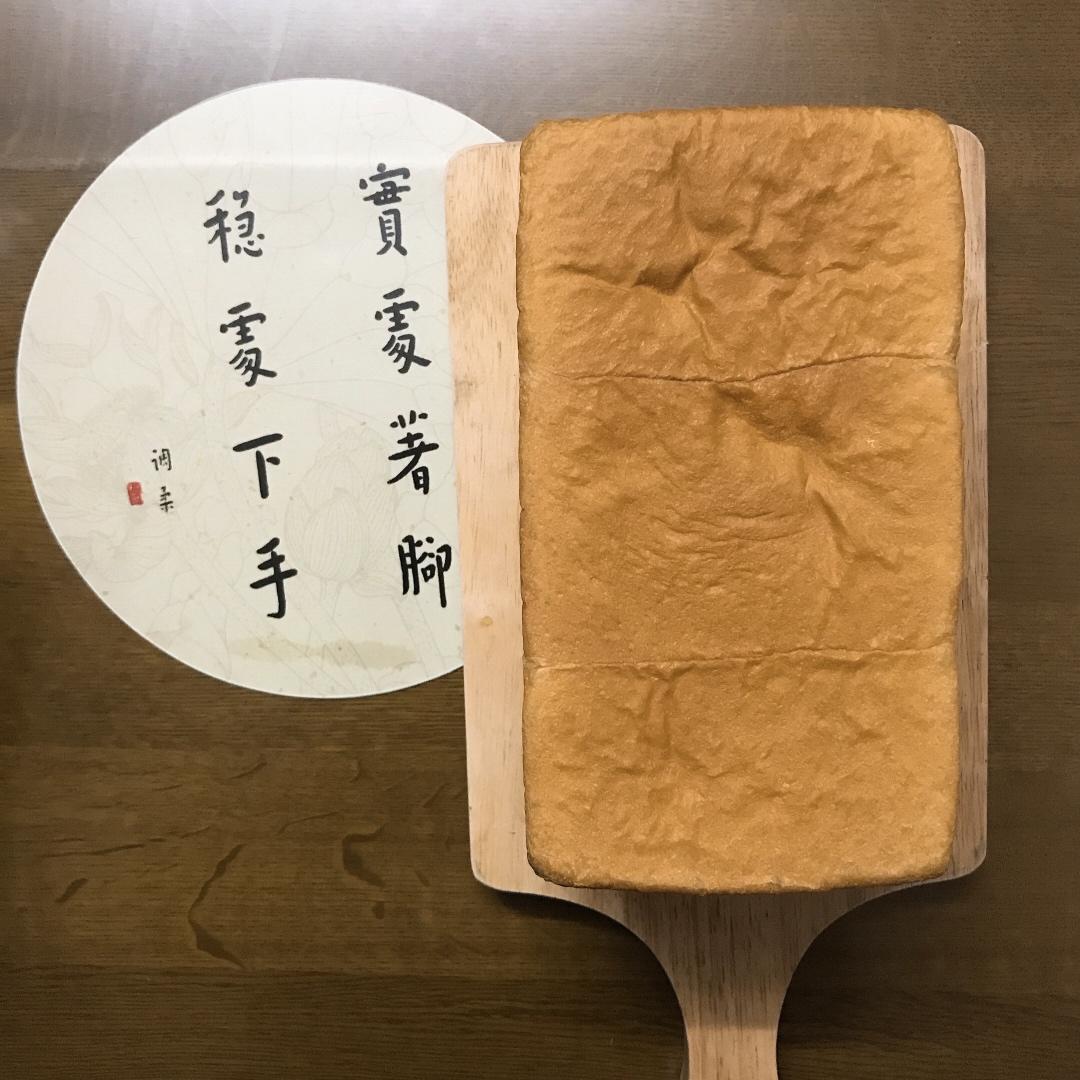 實處著腳
穩處下手
调柔